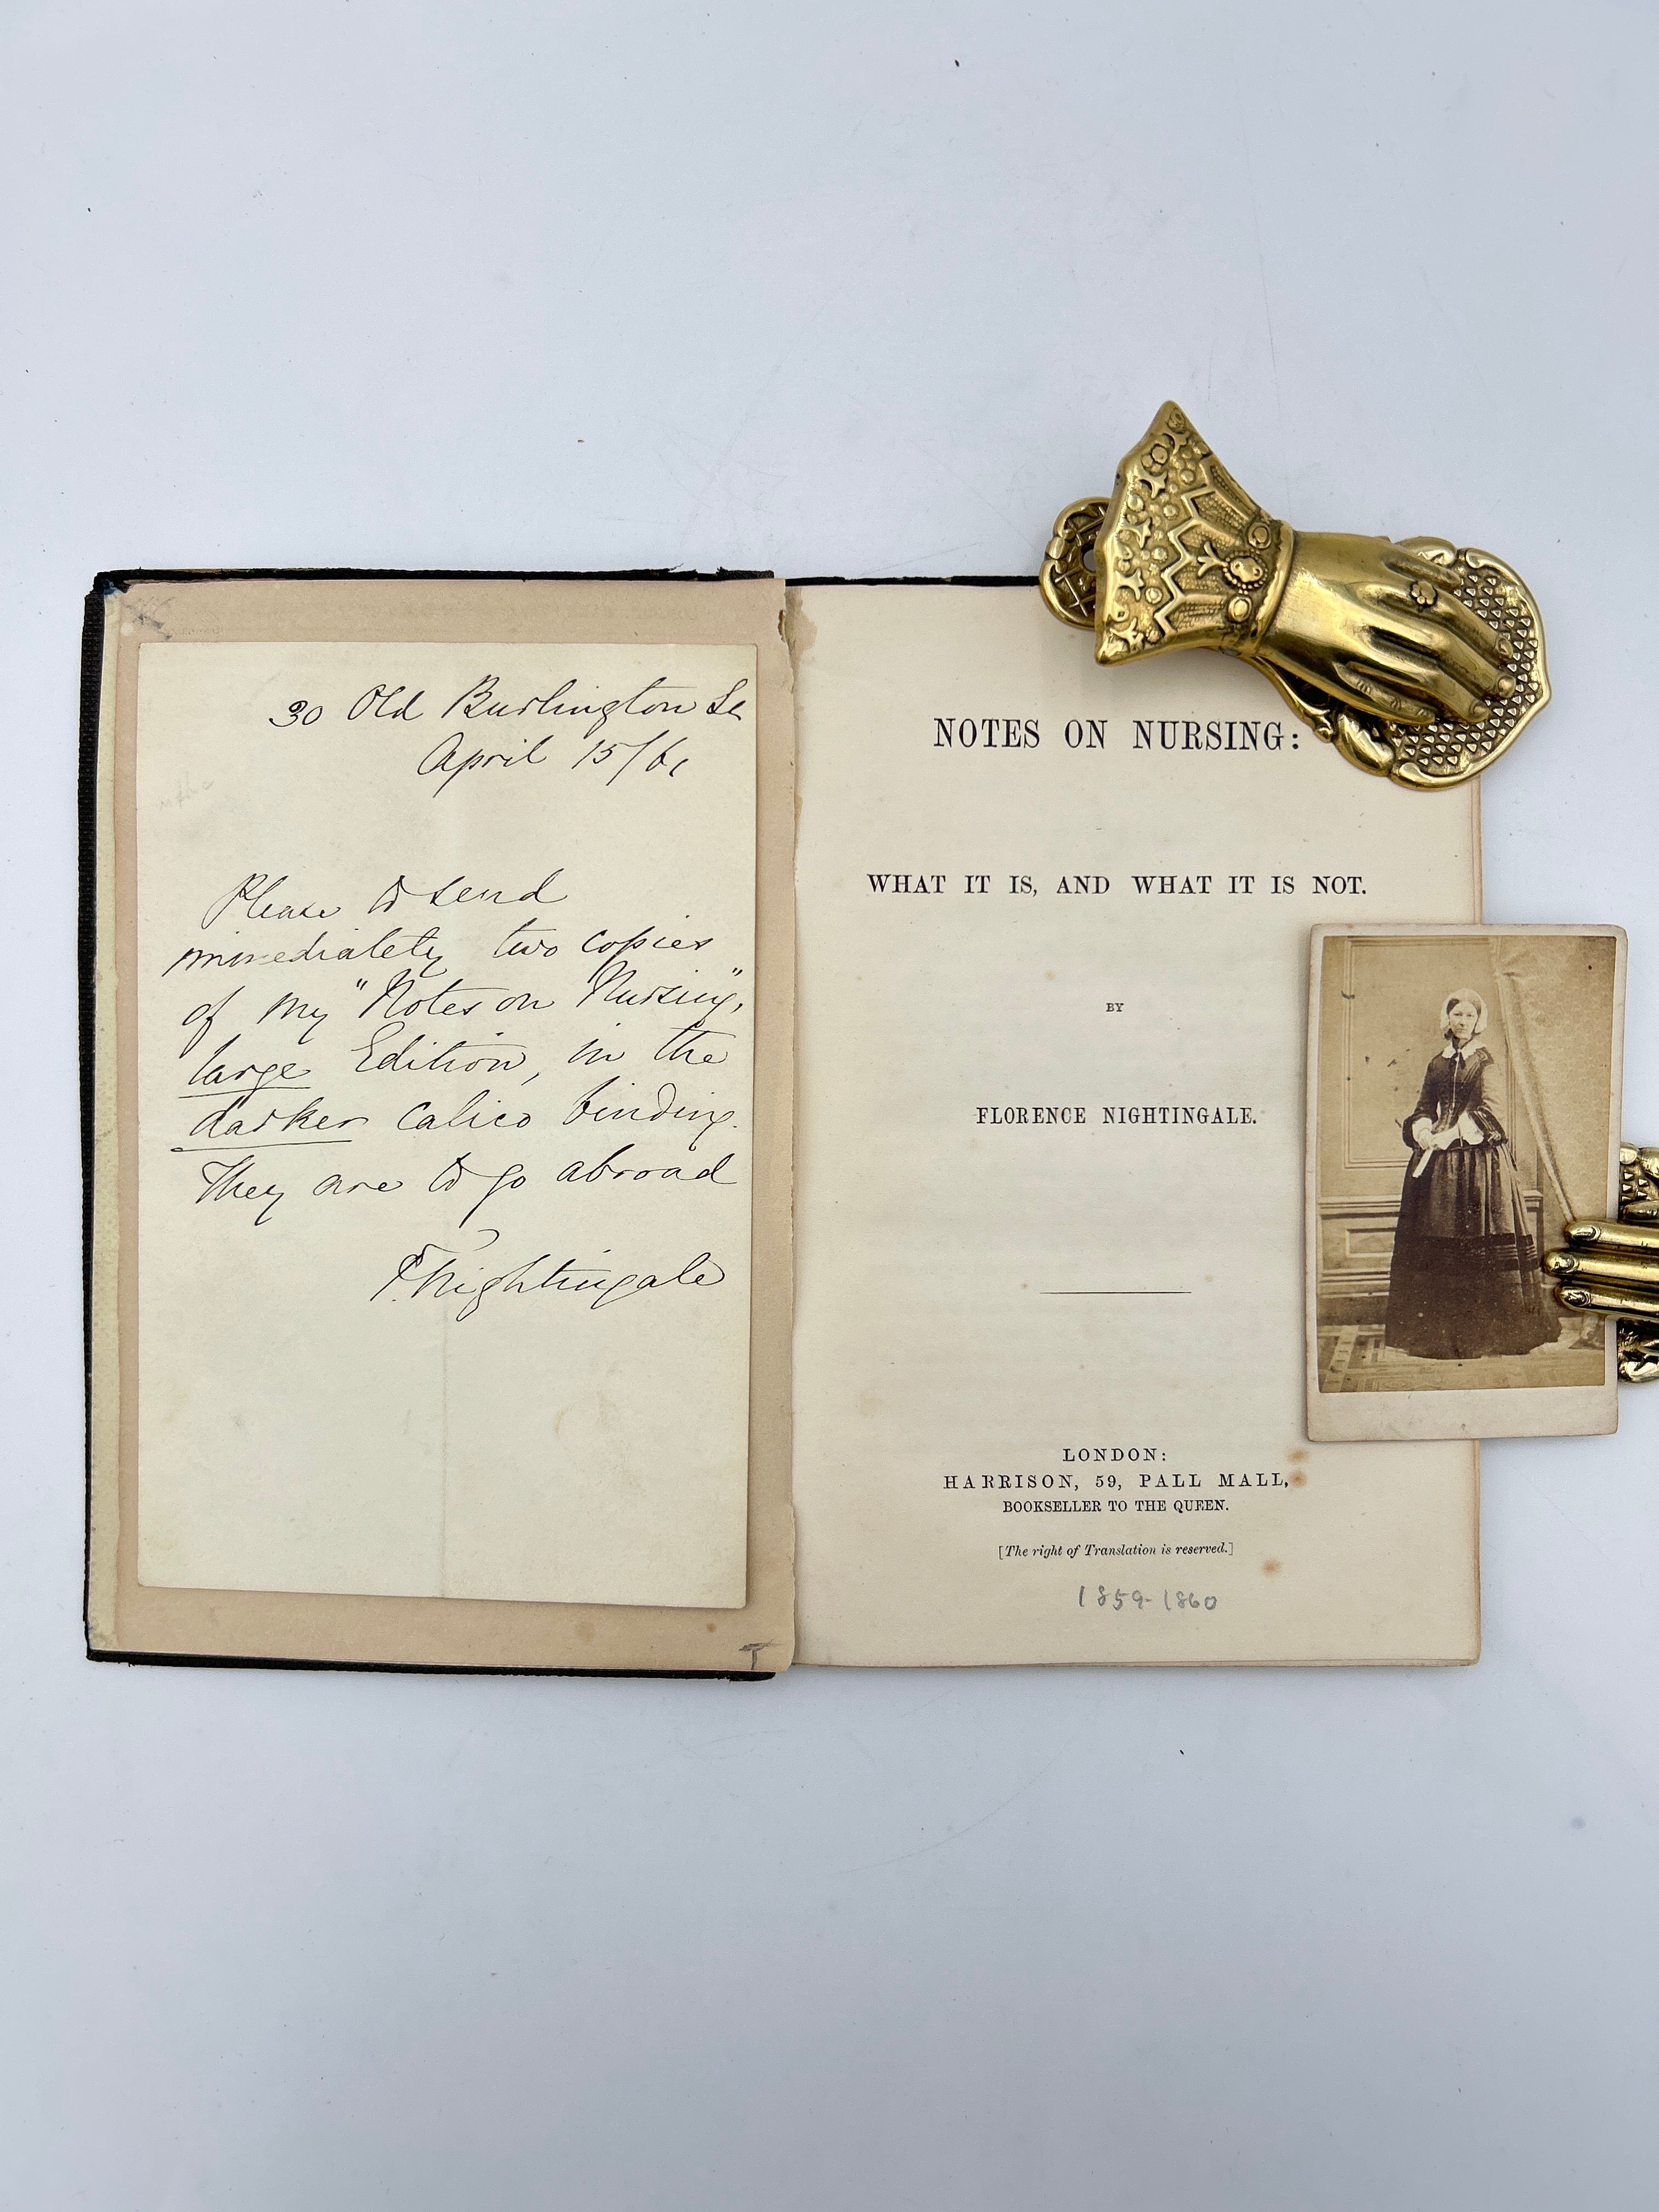 30 Old Burlington St
April 15/61
Please to send
immediately two copies
of my "Notes on Nursing",
large Edition, in the
darker calico binding.
They are to go abroad
F. Nightingale
NOTES ON NURSING:
WHAT IT IS, AND WHAT IT IS NOT.
BY
FLORENCE NIGHTINGALE.
LONDON:
HARRISON, 59, PALL MALL,
BOOKSELLER TO THE QUEEN.
[The right of Translation is reserved.]
1859-1860
T